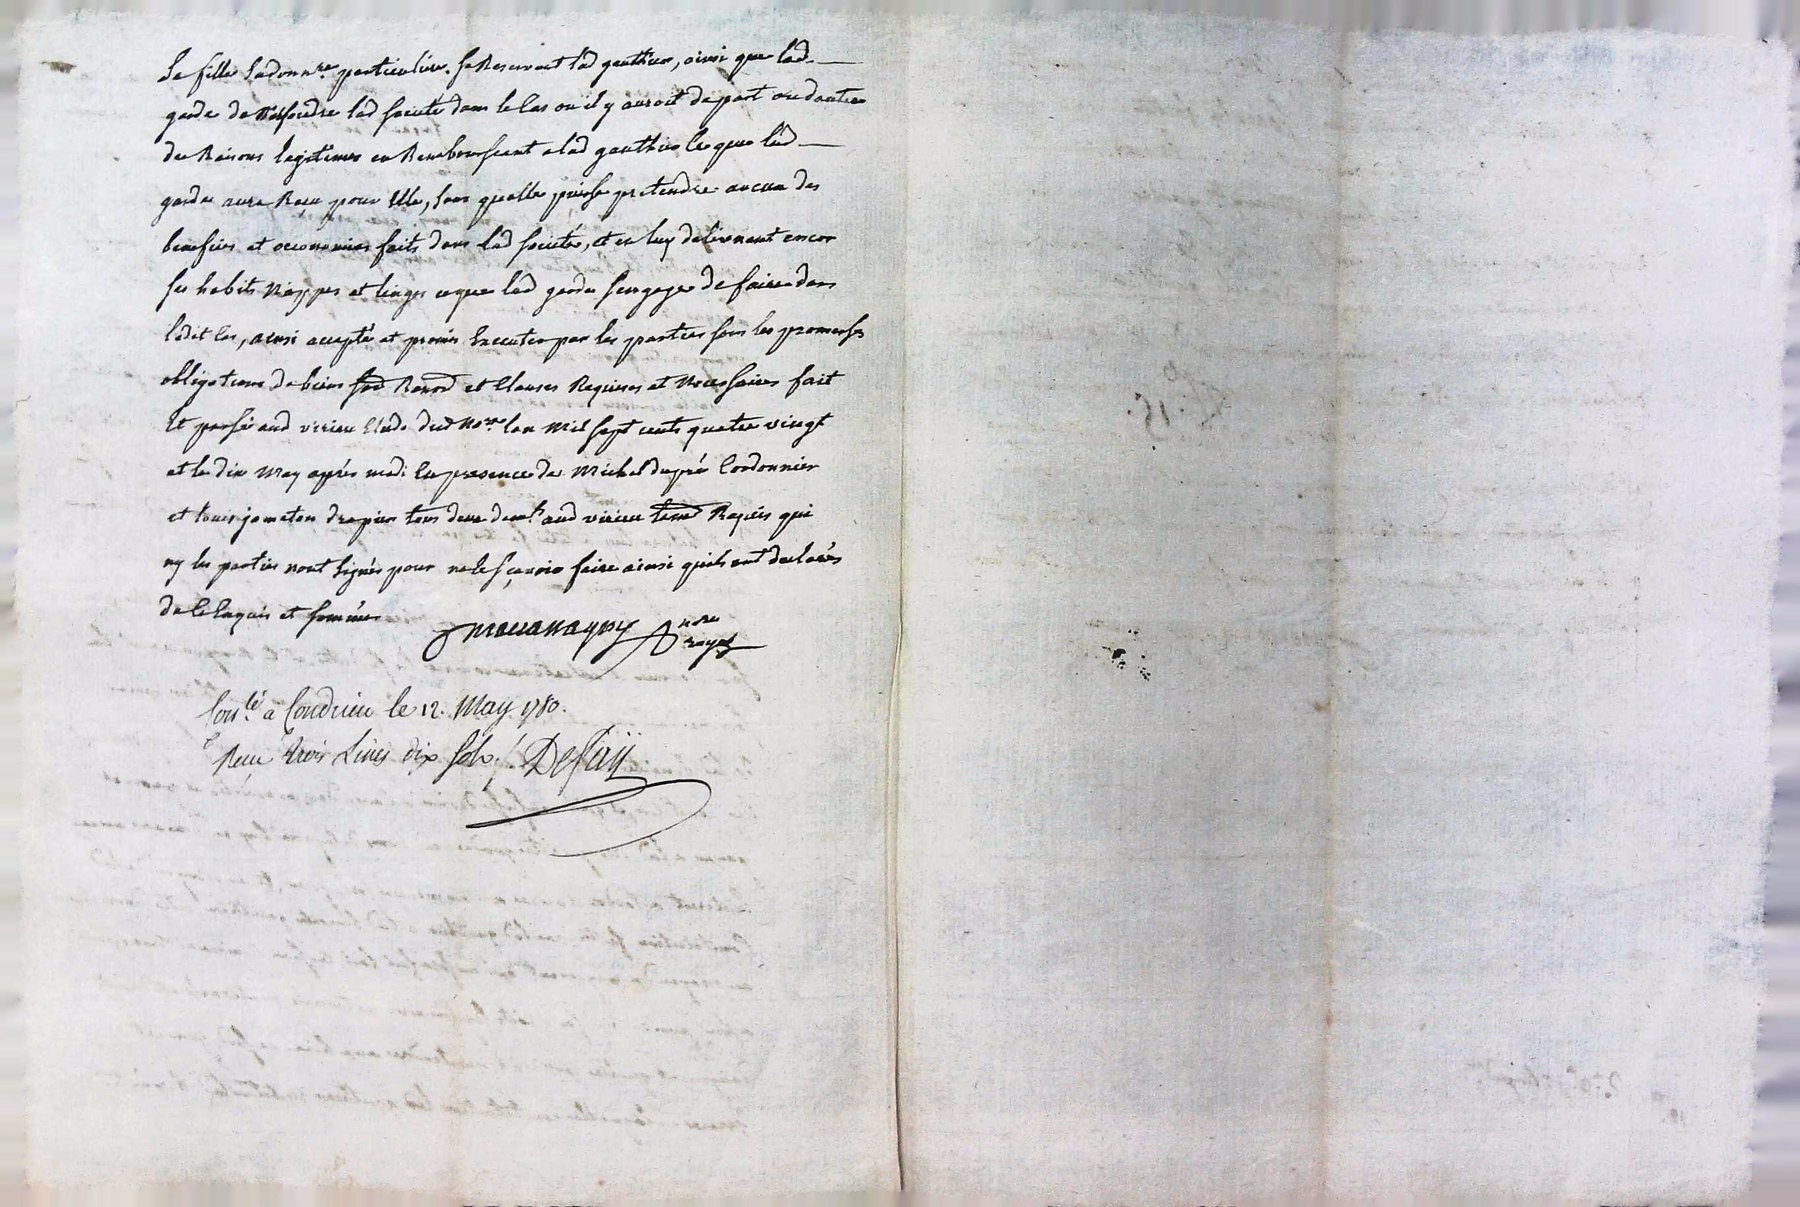 sa fille sadonn.re particuliere. se Reservant lad gauthier, ainsi que lad.
garde de Resoudre lad societé dans le cas ou il y auroit de part ou dautre
des Raisons legitimes en Remboursant a lad gauthier ce que lad
garde aura Reçu pour elle, sans quelle puisse pretendre aucun des
benefices et oeconomies faits dans lad societée, et en luy delivrant encor
ses habits Nippes et linges ce que lad garde sengage de faire dans
ledit cas, ainsi accepté et promis Executer par les parties sous les promesses
obligations de biens et Clauses Requises et Necessaires fait
Et passé aud virieu Etude dud No.re lan mil sept cents quatre vingt
et le dix may après midi En presence de Michel dupré Cordonnier
et louis jometon drapier tous deux dem.t aud virieu Requis qui
ny les parties nont signés pour ne le sçavoir faire ainsi quils ont declarés
de ce Enquis et sommés
no.re
royal
Con.lé à Condrieu le 12. May 1780.
Reçu trois Livres dix sols.